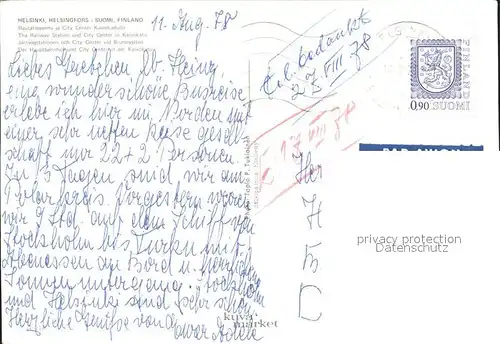 HELSINKI, HELSINGFORS - SUOMI, FINLAND
Rautatieasema ja City Center Kaivokadulla
The Railway Station and City Center in Kaivokatu
Järnvägsstationen och City Center vid Brunnsgatan
Der Hauptbahnhof und City Center an der Kaivokatu
11. Aug. 78
Liebes Gretchen, lb. Heinz,
eine wunderschöne Busreise
erlebe ich hier im Norden mit
einer sehr netten Reisegesell
schaft nur 22 + 2 Personen.
In 3 Tagen sind wir am
Polarkreis. Vorgestern waren
wir 9 Std. auf dem Schiff von
Stockholm bis Turku mit
Abendessen an Bord u. herrlichem
Sonnenuntergang. Stockholm
und Helsinki sind sehr schön.
Herzliche Grüße von
Eurer
tel. bedankt
27 VIII 78
17 VIII 78
FINLAND
0,90 SUOMI
PAR AVION
H
privacy protection
Datenschutz
kuva market